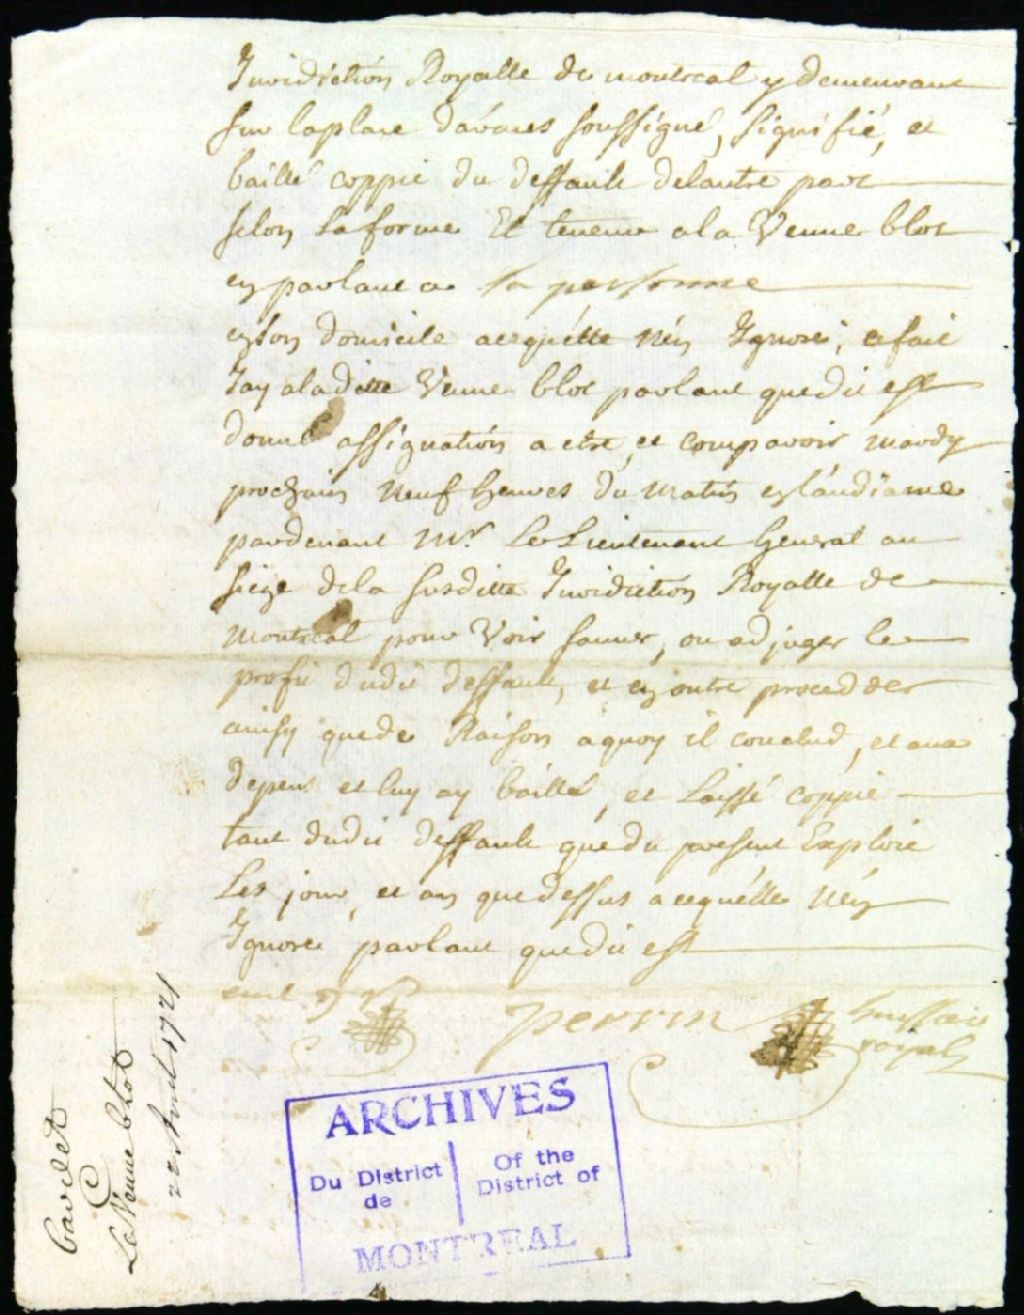 Juridiction Royalle de montreal y demeurant
sur laplace darmes soussigné, signifié, et
baillé coppie du deffault delautre part
selon sa forme Et teneur ala Veuve blot
en parlant a sa personne
enson domicile acequelle n'en Ignore, cefait
Jay aladitte Veuve blot parlant quedit est
donné assignation a etre, et comparoir mardy
prochain neuf heures du matin enlaudiance
pardevant Mr. Le Lieutenant General au
siege dela susditte Juridiction Royalle de
Montreal pour Voir sauver, ou adjuger le
profit dudit deffault, et en outre proceder
ainsy quede Raison aquoy il conclud, et aux
depens et luy ay baillé, et Laissé coppie
tant dudit deffault quedu present Exploit
Les jour, et an quedessus acequelle n'en
Ignore parlant quedit est
perrin huissier
royal
Veuve blot
22 Avril 1721
ARCHIVES
Du District de
Of the District of
MONTREAL